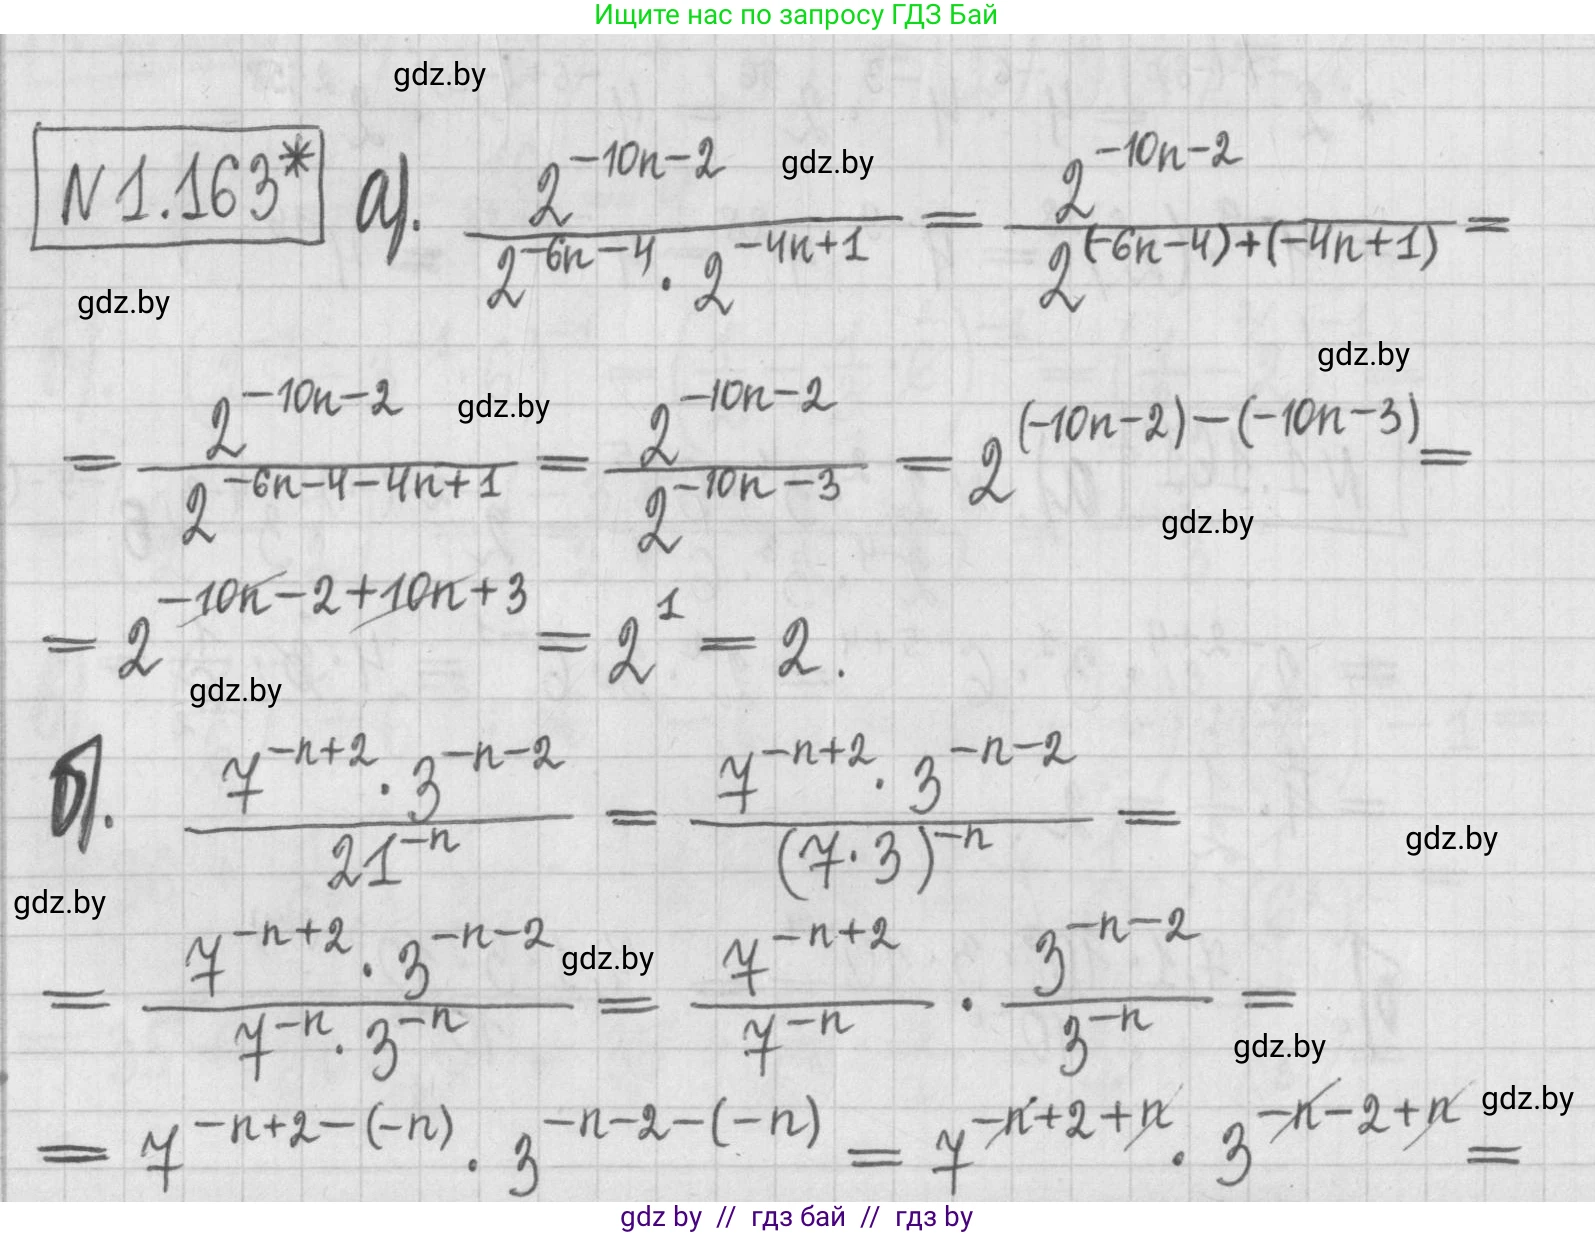 Ищите нас по запросу ГДЗ Бай
gdz.by
N 1.163* а). 2^(-10n-2) / (2^(-6n-4) · 2^(-4n+1)) = 2^(-10n-2) / 2^((-6n-4)+(-4n+1)) =
gdz.by
gdz.by
gdz.by
= 2^(-10n-2) / 2^(-6n-4-4n+1) = 2^(-10n-2) / 2^(-10n-3) = 2^((-10n-2)-(-10n-3)) =
gdz.by
gdz.by
= 2^(-10n-2+10n+3) = 2^1 = 2.
gdz.by
б). 7^(-n+2) · 3^(-n-2) / 21^(-n) = 7^(-n+2) · 3^(-n-2) / (7·3)^(-n) =
gdz.by
gdz.by
= 7^(-n+2) · 3^(-n-2) / (7^(-n) · 3^(-n)) = 7^(-n+2) / 7^(-n) · 3^(-n-2) / 3^(-n) =
gdz.by
gdz.by
= 7^(-n+2-(-n)) · 3^(-n-2-(-n)) = 7^(-n+2+n) · 3^(-n-2+n) =
gdz.by
gdz by // гдз бай // гдз by